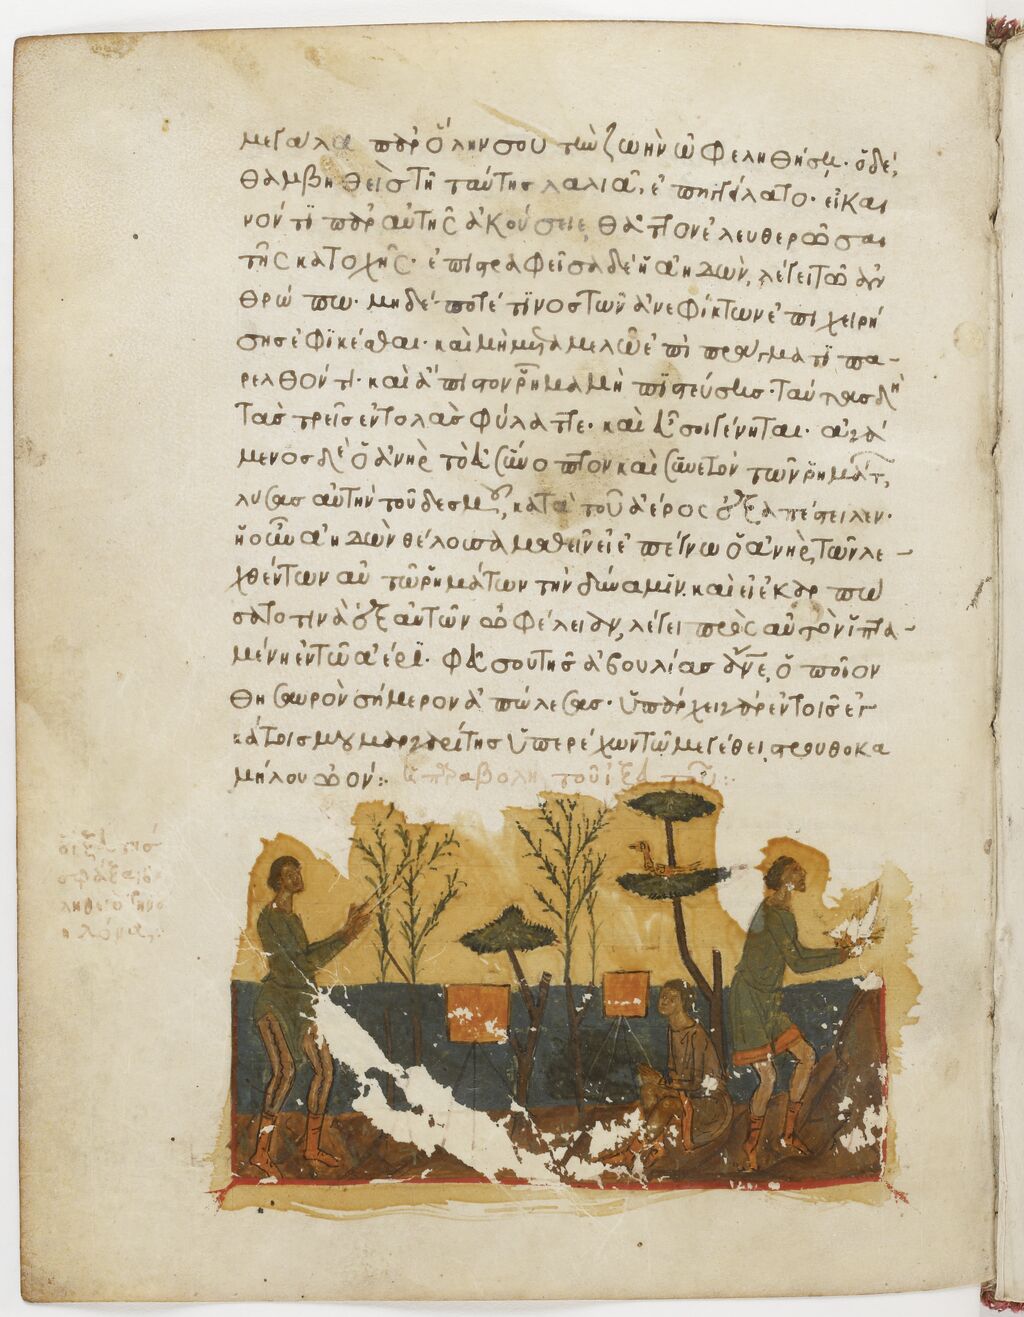 μεγάλα παρ' ὅλην σου τὴν ζωὴν ὠφεληθήση· ὁ δὲ,
θαμβηθεὶς τῆ ταύτης λαλιᾶ, ἐπηγγείλατο· εἰ και
νόν τι παρ' αὐτῆς ἀκούσειε, θᾶττον ἐλευθερῶσαι
τῆς κατοχῆς· ἐπιστραφεῖσα δὲ ἡ ἀηδὼν, λέγει τῶ ἀν
θρώπω· μηδέποτέ τινος τῶν ἀνεφίκτων ἐπιχειρή
σης ἐφικέσθαι· καὶ μὴ μεταμελοῦ ἐπὶ πράγματι πα-
ρελθόντι· καὶ ἄπιστον ῥῆμα μὴ πιστεύσης· ταύτας δὴ
τὰς τρεῖς ἐντολὰς φύλαττε· καὶ εὖ σοι γένηται· ἀγά
μενος δὲ ὁ ἀνὴρ τὸ εὐσύνοπτον καὶ συνετὸν τῶν ῥημάτ,
λύσας αὐτὴν τοῦ δεσμοῦ, κατὰ τοῦ ἀέρος ἐξαπέστειλεν·
ἡ οὖν ἀηδὼν θέλουσα μαθεῖν εἰ ἐπέγνω ὁ ἀνὴρ τῶν λε-
χθέντων αὐτῶ ῥημάτων τὴν δύναμιν· καὶ εἰ ἐκαρπώ
σατο τινὰ ἐξ αὐτῶν ὠφέλειαν, λέγει πρὸς αὐτὸν ἱπτα-
μένη ἐν τῶ ἀέρι· φεῦ σου τῆς ἀβουλίας ἄνθρωπε, ὁποῖον
θησαυρὸν σήμερον ἀπώλεσας· ὑπάρχει γὰρ ἐν τοῖς ἐγ-
κάτοις μου μαργαρίτης ὑπερέχων τῶ μεγέθει, στρουθοκα
μήλου ὠόν: ἡ παραβολὴ τοῦ ἰξευτοῦ: